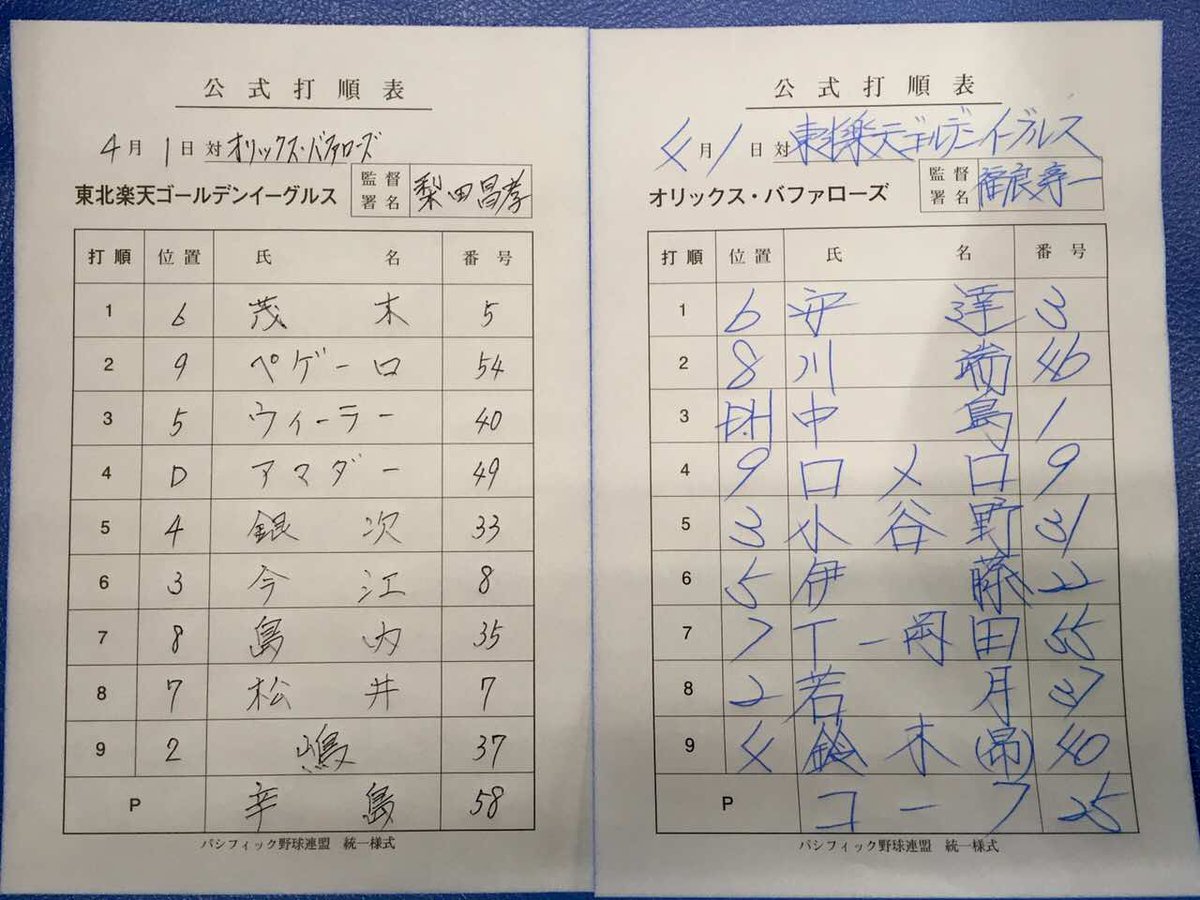 公式打順表
4月1日対オリックス・バファローズ
東北楽天ゴールデンイーグルス 監督署名 梨田昌孝
打順 位置 氏名 番号
1 6 茂木 5
2 9 ペゲーロ 54
3 5 ウィーラー 40
4 D アマダー 49
5 4 銀次 33
6 3 今江 8
7 8 島内 35
8 7 松井 7
9 2 嶋 37
P 辛島 58
パシフィック野球連盟 統一様式
公式打順表
4月1日対東北楽天ゴールデンイーグルス
オリックス・バファローズ 監督署名 福良寿一
打順 位置 氏名 番号
1 6 安達 3
2 8 川端 46
3 DH 中島 1
4 9 ロメロ 9
5 3 小谷野 31
6 5 伊藤 22
7 7 T-岡田 55
8 2 若月 37
9 4 鈴木(昂) 40
P コーク 25
パシフィック野球連盟 統一様式